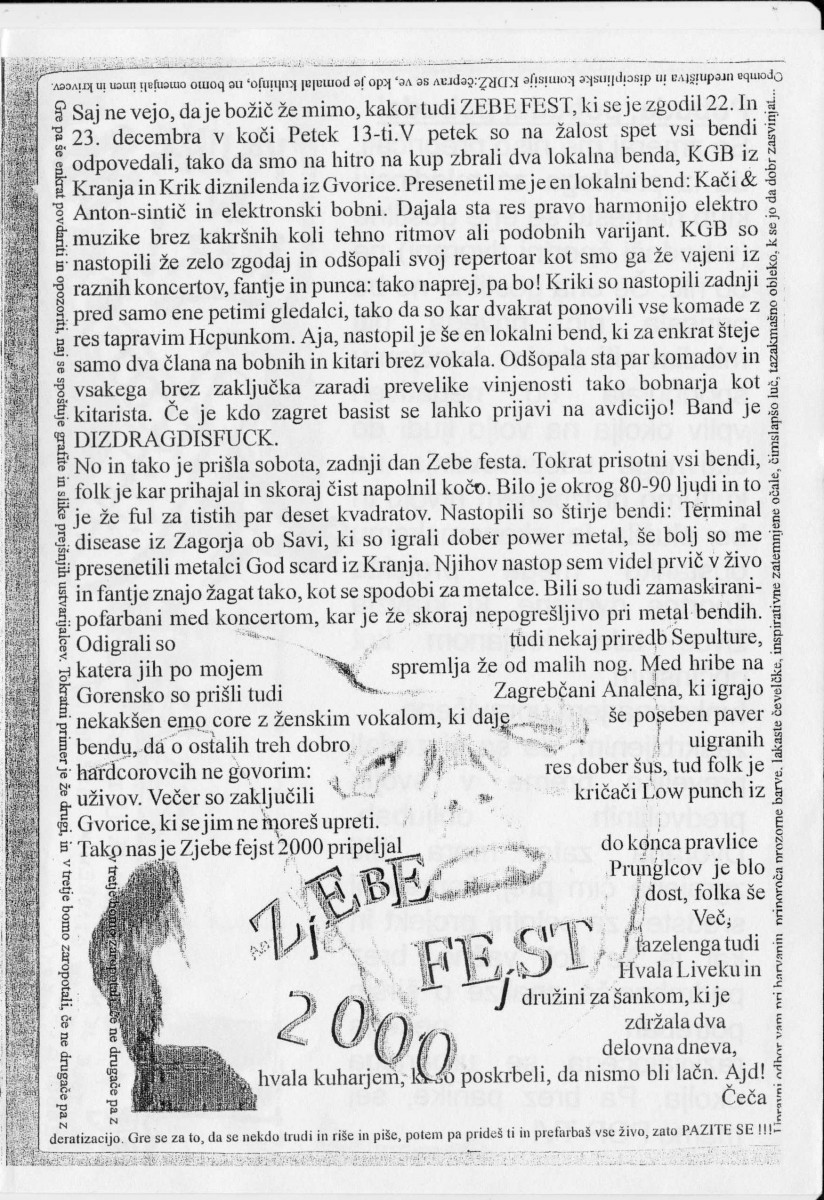 Opomba uredništva in disciplinske komisije KIDRŽ:čeprav se ve, kdo je pomalal kuhinjo, ne bomo omenjali imen in krivcev.
Gre pa še enkrat povdariti in opozoriti, naj se spoštuje grafite in slike prejšnjih ustvarjalcev. Tokratni primer je že drugi, in v tretje bomo zaropotali, če ne drugače pa z
deratizacijo. Gre se za to, da se nekdo trudi in riše in piše, potem pa prideš ti in prefarbaš vse živo, zato PAZITE SE !!!
Upravni odbor vam pri barvanju priporoča prozorne barve, lakaste čeveljčke, inspirativne zatemnjene očale, čimslapšo luč, tazakmašno obleko, k se jo da dobr zasvinjat...
Saj ne vejo, da je božič že mimo, kakor tudi ZEBE FEST, ki se je zgodil 22. In
23. decembra v koči Petek 13-ti.V petek so na žalost spet vsi bendi
odpovedali, tako da smo na hitro na kup zbrali dva lokalna benda, KGB iz
Kranja in Krik diznilenda iz Gvorice. Presenetil me je en lokalni bend: Kači &
Anton-sintič in elektronski bobni. Dajala sta res pravo harmonijo elektro
muzike brez kakršnih koli tehno ritmov ali podobnih varijant. KGB so
nastopili že zelo zgodaj in odšopali svoj repertoar kot smo ga že vajeni iz
raznih koncertov, fantje in punca: tako naprej, pa bo! Kriki so nastopili zadnji
pred samo ene petimi gledalci, tako da so kar dvakrat ponovili vse komade z
res tapravim Hcpunkom. Aja, nastopil je še en lokalni bend, ki za enkrat šteje
samo dva člana na bobnih in kitari brez vokala. Odšopala sta par komadov in
vsakega brez zaključka zaradi prevelike vinjenosti tako bobnarja kot
kitarista. Če je kdo zagret basist se lahko prijavi na avdicijo! Band je
DIZDRAGDISFUCK.
No in tako je prišla sobota, zadnji dan Zebe festa. Tokrat prisotni vsi bendi,
folk je kar prihajal in skoraj čist napolnil kočo. Bilo je okrog 80-90 ljudi in to
je že ful za tistih par deset kvadratov. Nastopili so štirje bendi: Terminal
disease iz Zagorja ob Savi, ki so igrali dober power metal, še bolj so me
presenetili metalci God scard iz Kranja. Njihov nastop sem videl prvič v živo
in fantje znajo žagat tako, kot se spodobi za metalce. Bili so tudi zamaskirani-
pofarbani med koncertom, kar je že skoraj nepogrešljivo pri metal bendih.
Odigrali so tudi nekaj priredb Sepulture,
katera jih po mojem spremlja že od malih nog. Med hribe na
Gorensko so prišli tudi Zagrebčani Analena, ki igrajo
nekakšen emo core z ženskim vokalom, ki daje še poseben paver
bendu, da o ostalih treh dobro uigranih
hardcorovcih ne govorim: res dober šus, tud folk je
uživov. Večer so zaključili kričači Low punch iz
Gvorice, ki se jim ne moreš upreti.
Tako nas je Zjebe fejst 2000 pripeljal do konca pravlice
Prunglcov je blo
dost, folka še
Več,
tazelenga tudi
Hvala Liveku in
družini za šankom, ki je
zdržala dva
delovna dneva,
hvala kuharjem, ki so poskrbeli, da nismo bli lačn. Ajd!
Čeča
ZjEBE
FEjST
2000
v tretje bomo zaropotali, če ne drugače pa z